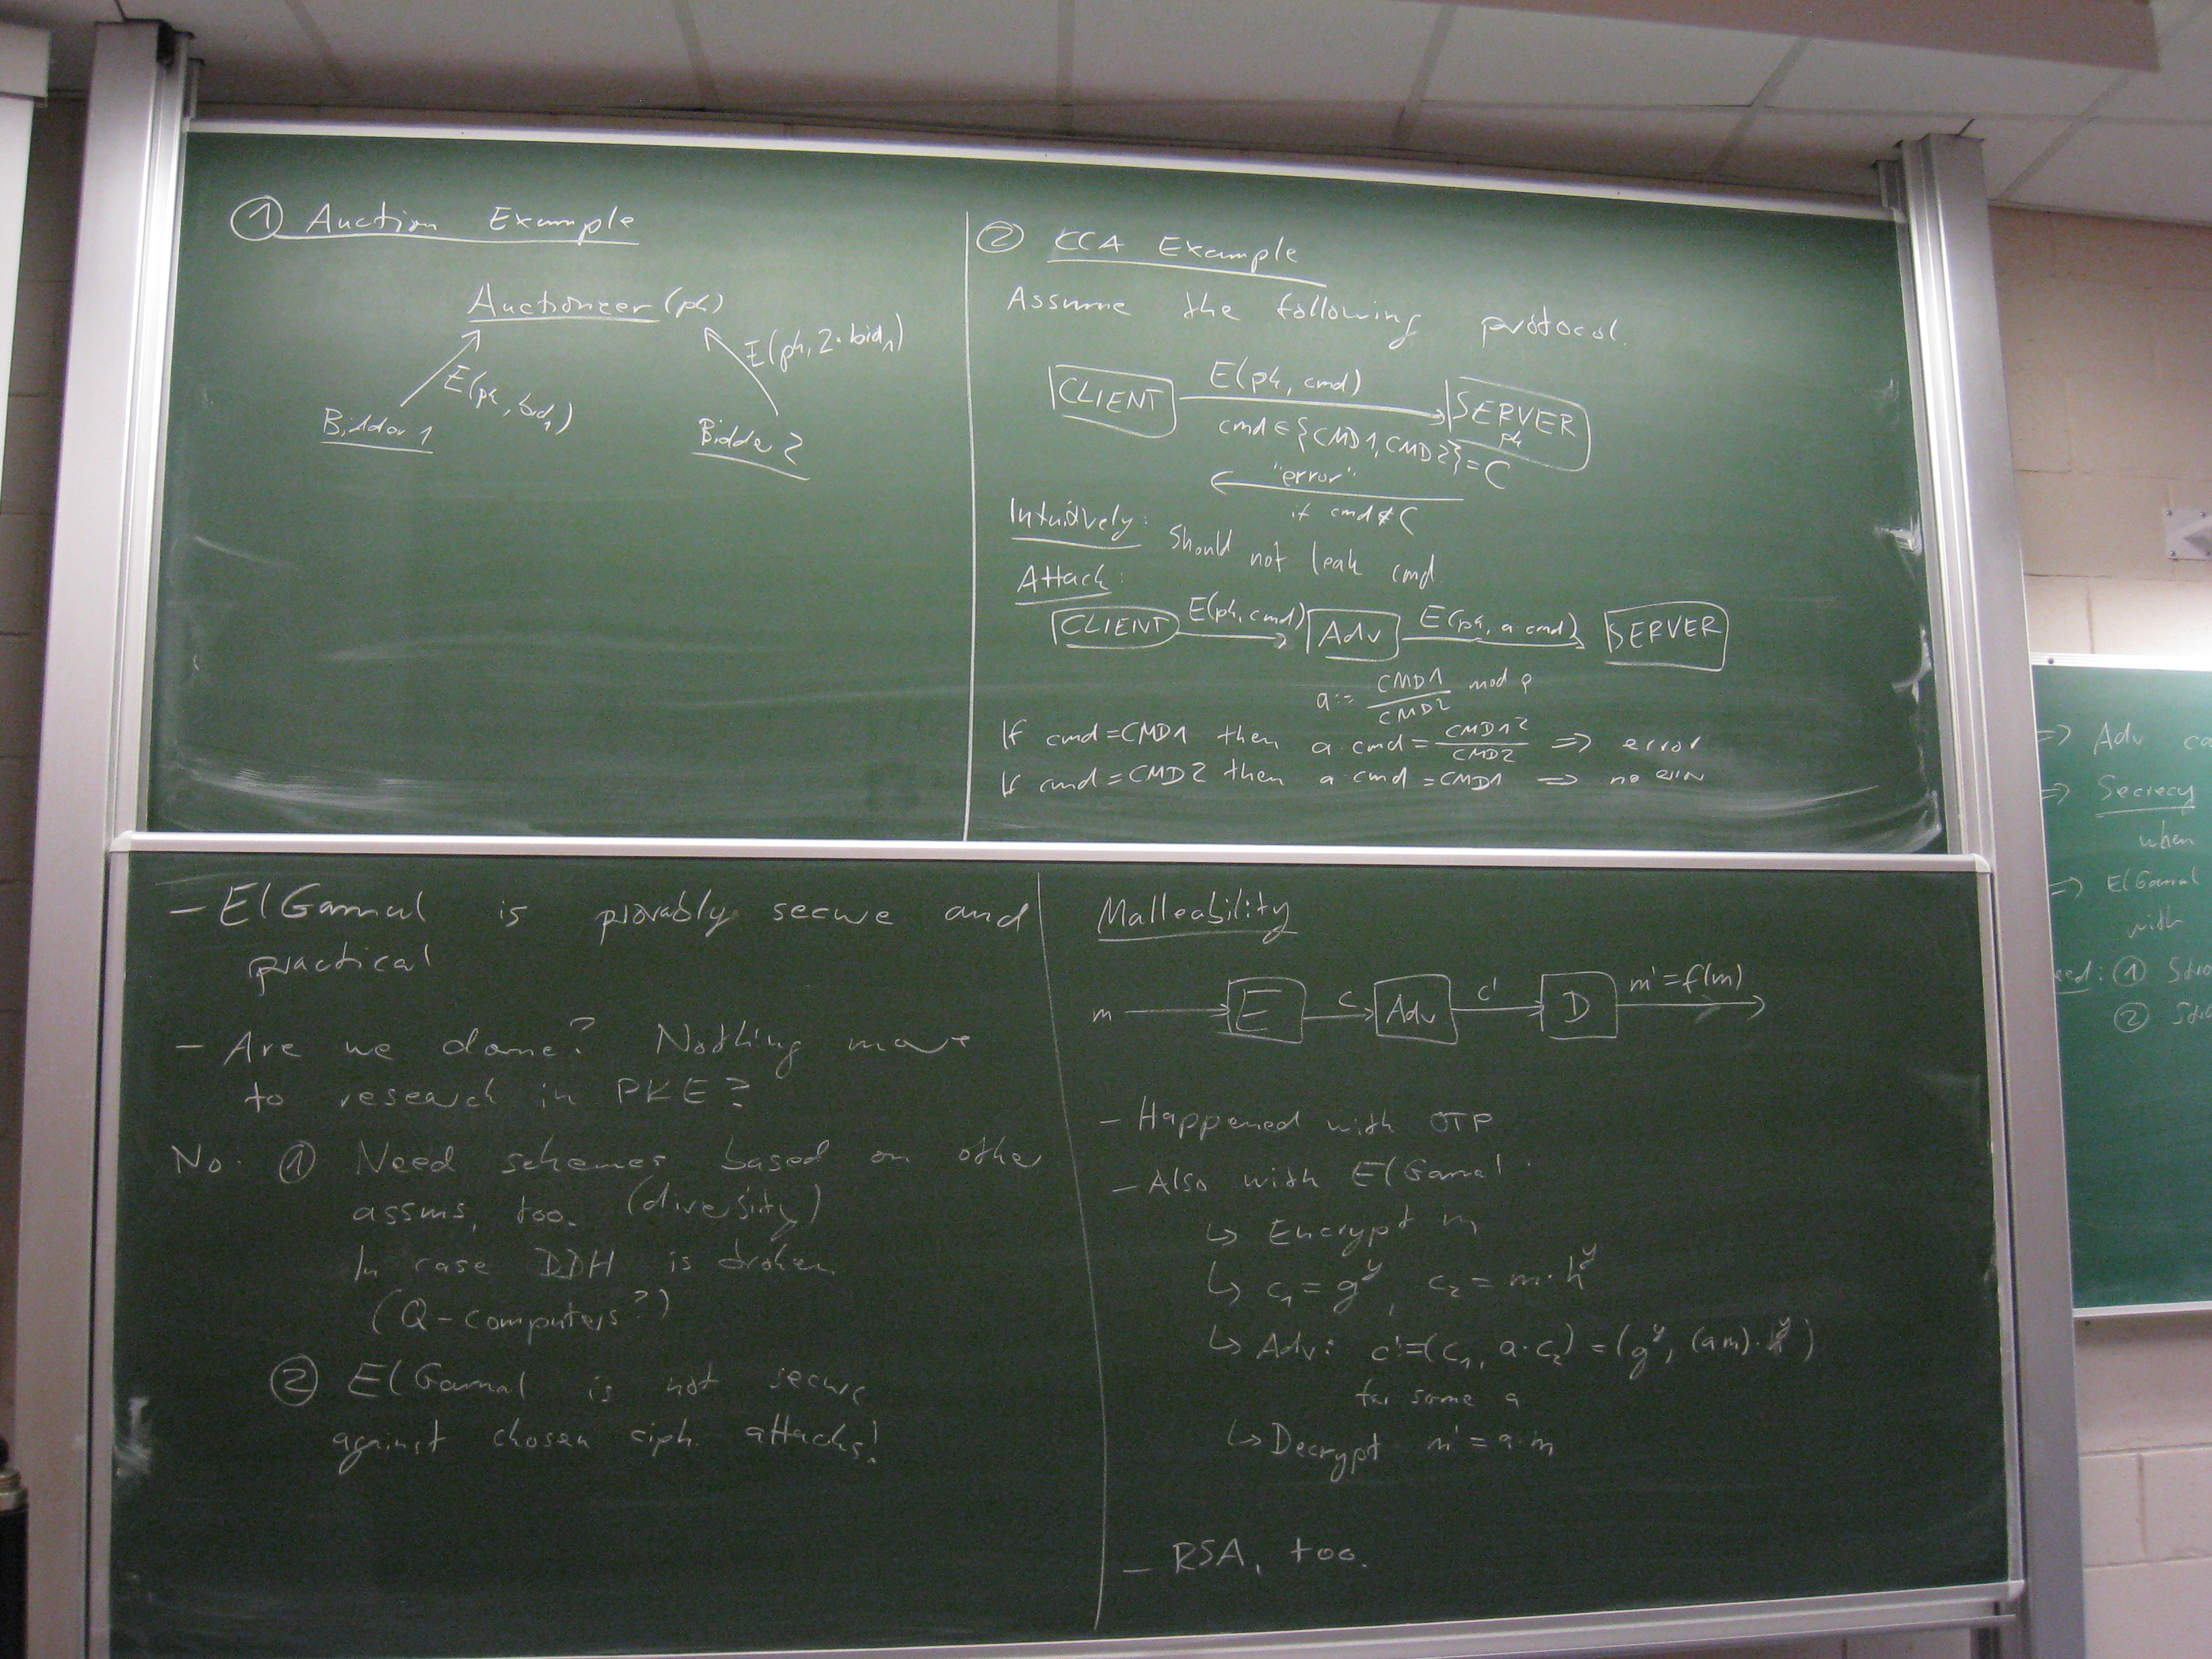 ① Auction Example
Auctioneer (pk)
E(pk, 2·bid₁)
E(pk, bid₁)
Bidder 1
Bidder 2
② CCA Example
Assume the following protocol.
CLIENT
E(pk, cmd)
SERVER
pk
cmd ∈ {CMD1, CMD2} = C
"error"
if cmd ∉ C
Intuitively: Should not leak cmd
Attack:
CLIENT E(pk, cmd) Adv E(pk, a cmd) SERVER
a := CMD1/CMD2 mod p
If cmd = CMD1 then a cmd = CMD1²/CMD2 => error
If cmd = CMD2 then a cmd = CMD1 => no error
- ElGamal is provably secure and
practical
- Are we done? Nothing more
to research in PKE?
No: ① Need schemes based on other
assms, too. (diversity)
In case DDH is broken
(Q-computers?)
② ElGamal is not secure
against chosen ciph. attacks!
Malleability
m E c Adv c' D m' = f(m)
- Happened with OTP
- Also with ElGamal:
↳ Encrypt m
↳ c₁ = g^y, c₂ = m·h^y
↳ Adv: c' = (c₁, a·c₂) = (g^y, (am)·h^y)
for some a
↳ Decrypt m' = a·m
- RSA, too.
=> Adv
=> Secrecy
when
=> ElGamal
with
①
②